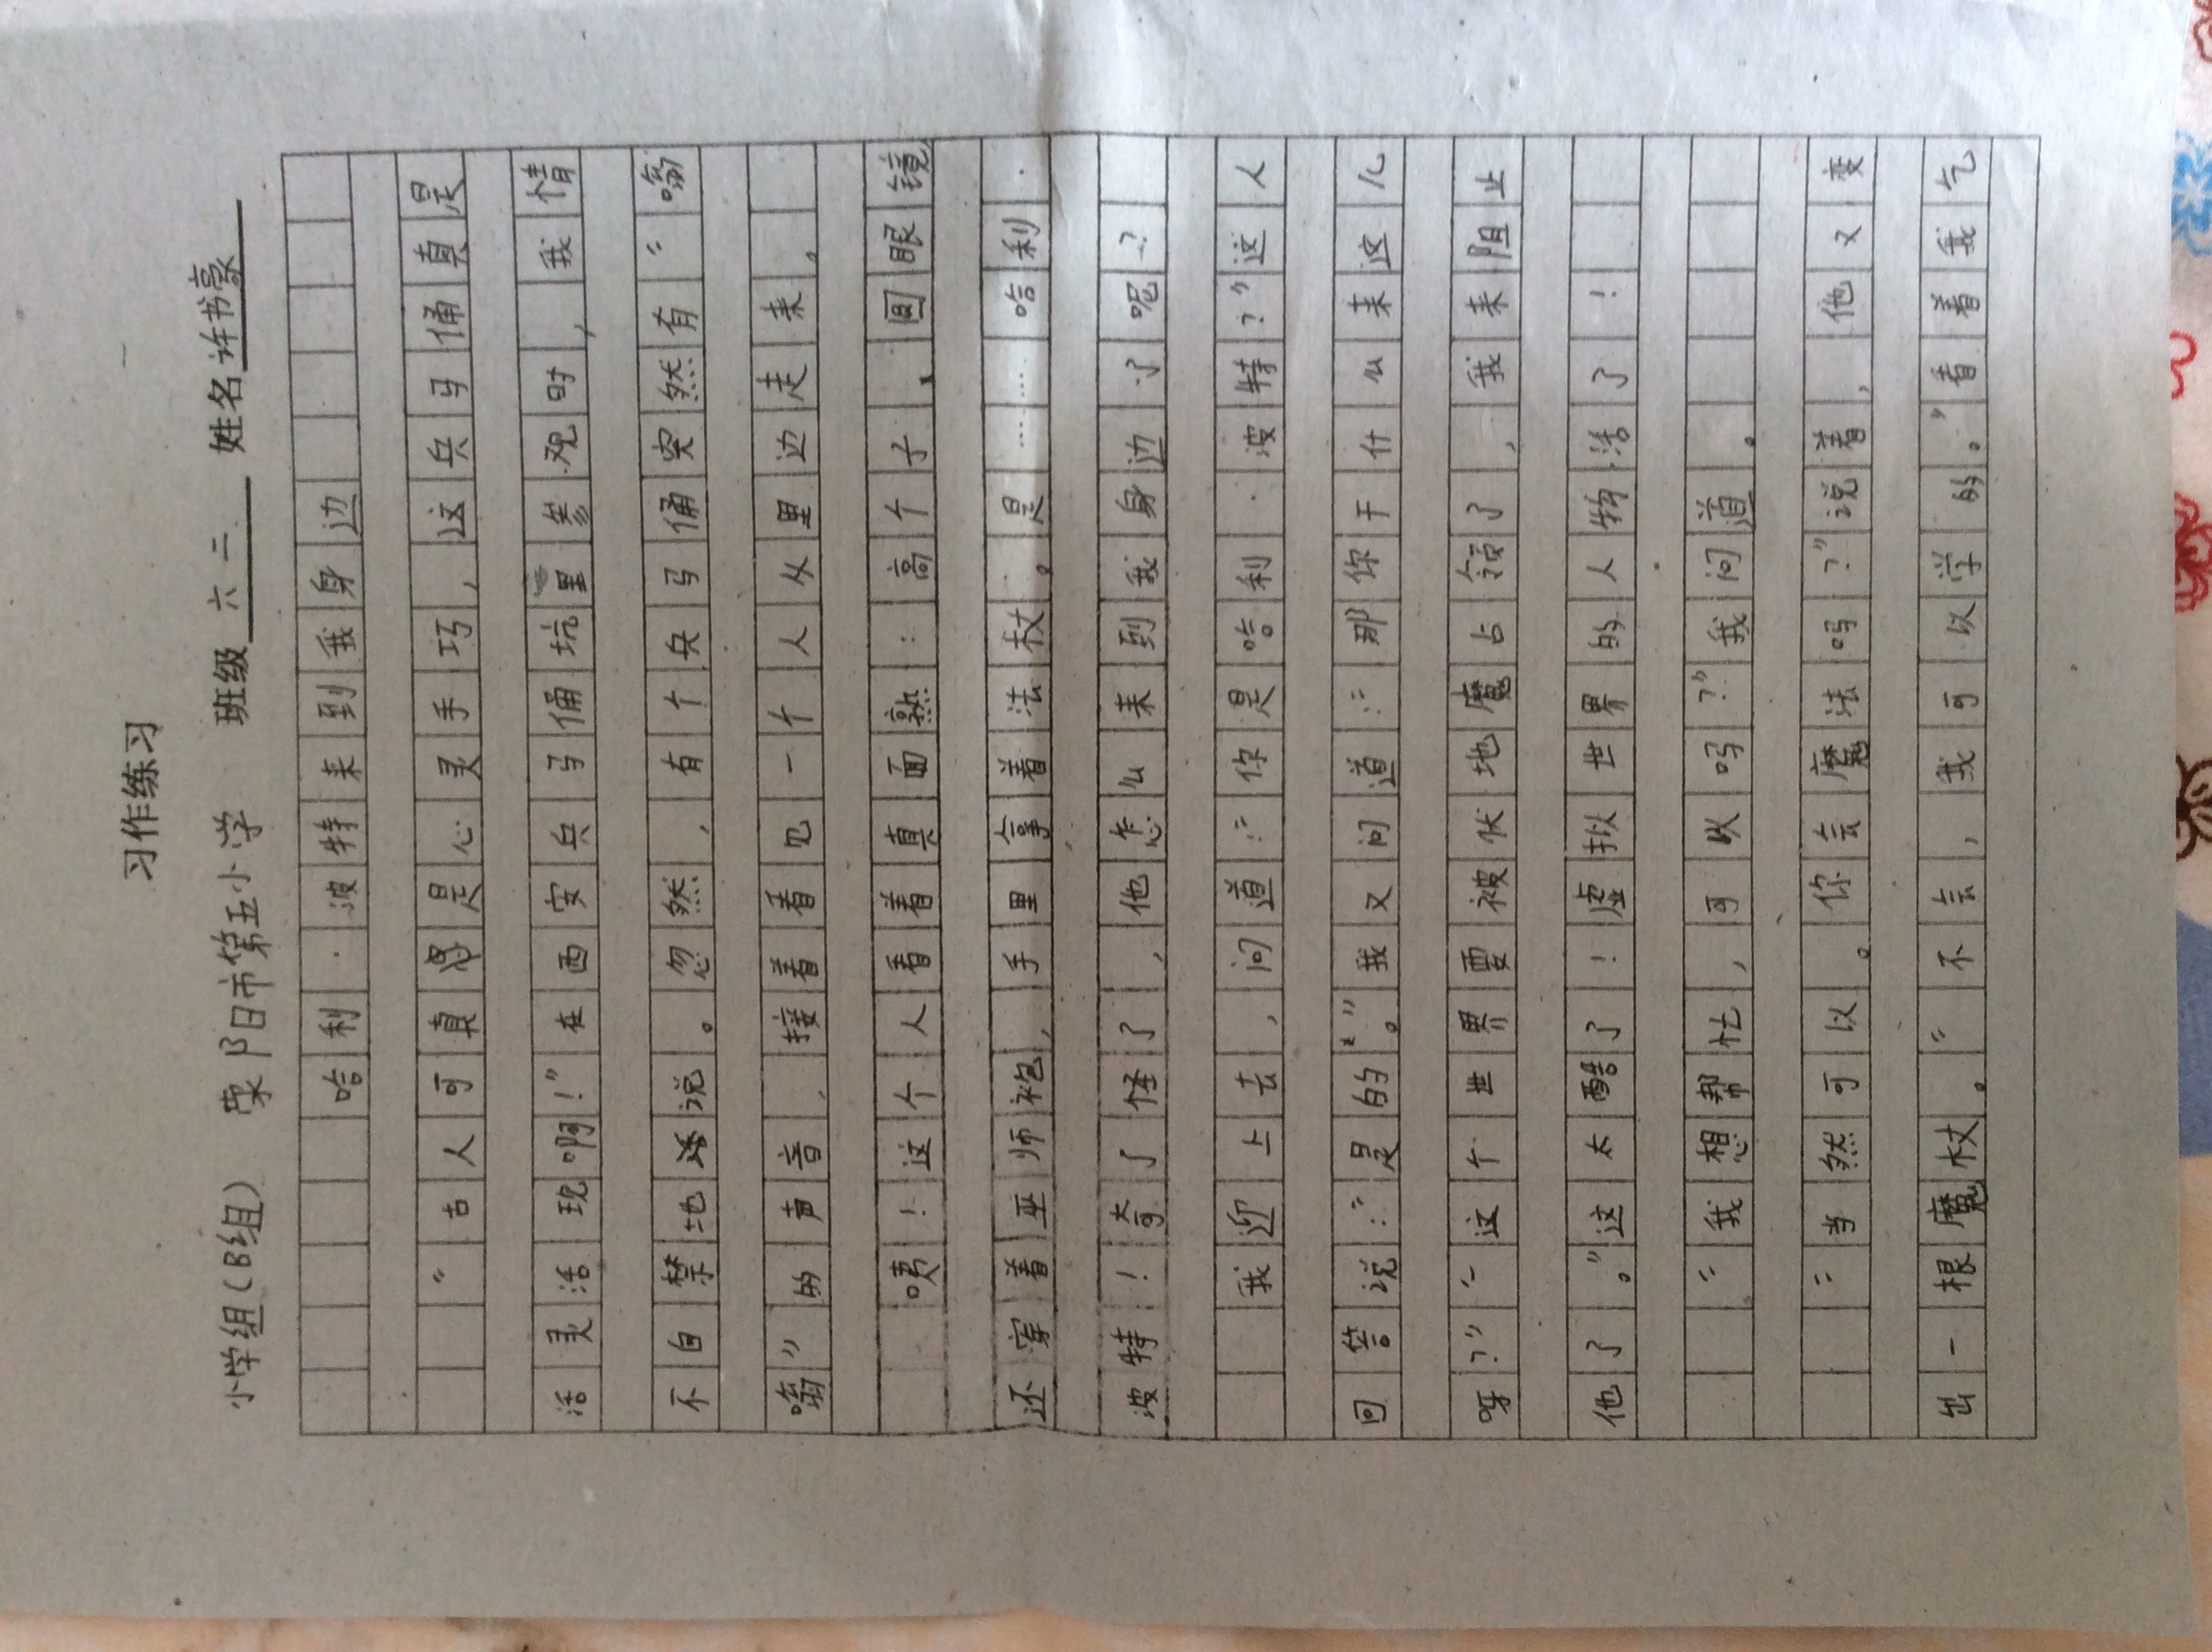 习作练习
小学组(B组) 荥阳市第五小学 班级 六二 姓名 许书豪
哈利·波特来到我身边
“古人可真是心灵手巧,这兵马俑真是
活灵活现啊!”在西安兵马俑坑里参观时,我情
不自禁地说。忽然,有个兵马俑突然有“嗡
嗡”的声音、接着看见一个人从里边走来。
咦!这个人看着真面熟:高个子、圆眼镜
还穿着巫师袍,手里拿着法杖。是……哈利·
波特!奇了怪了,他怎么来到我身边了呢?
我迎上去,问道:“你是哈利·波特?”这人
回答说:“是的。”我又问道:“那你干什么来这儿
呀?”“这个世界要被伏地魔占领了,我来阻止
他了。”这太酷了!虚拟世界的人物活了!
“我想帮忙,可以吗?”我问道。
“当然可以。你会魔法吗?”说着,他又变
出一根魔杖。“不会,我可以学的。”看着我气